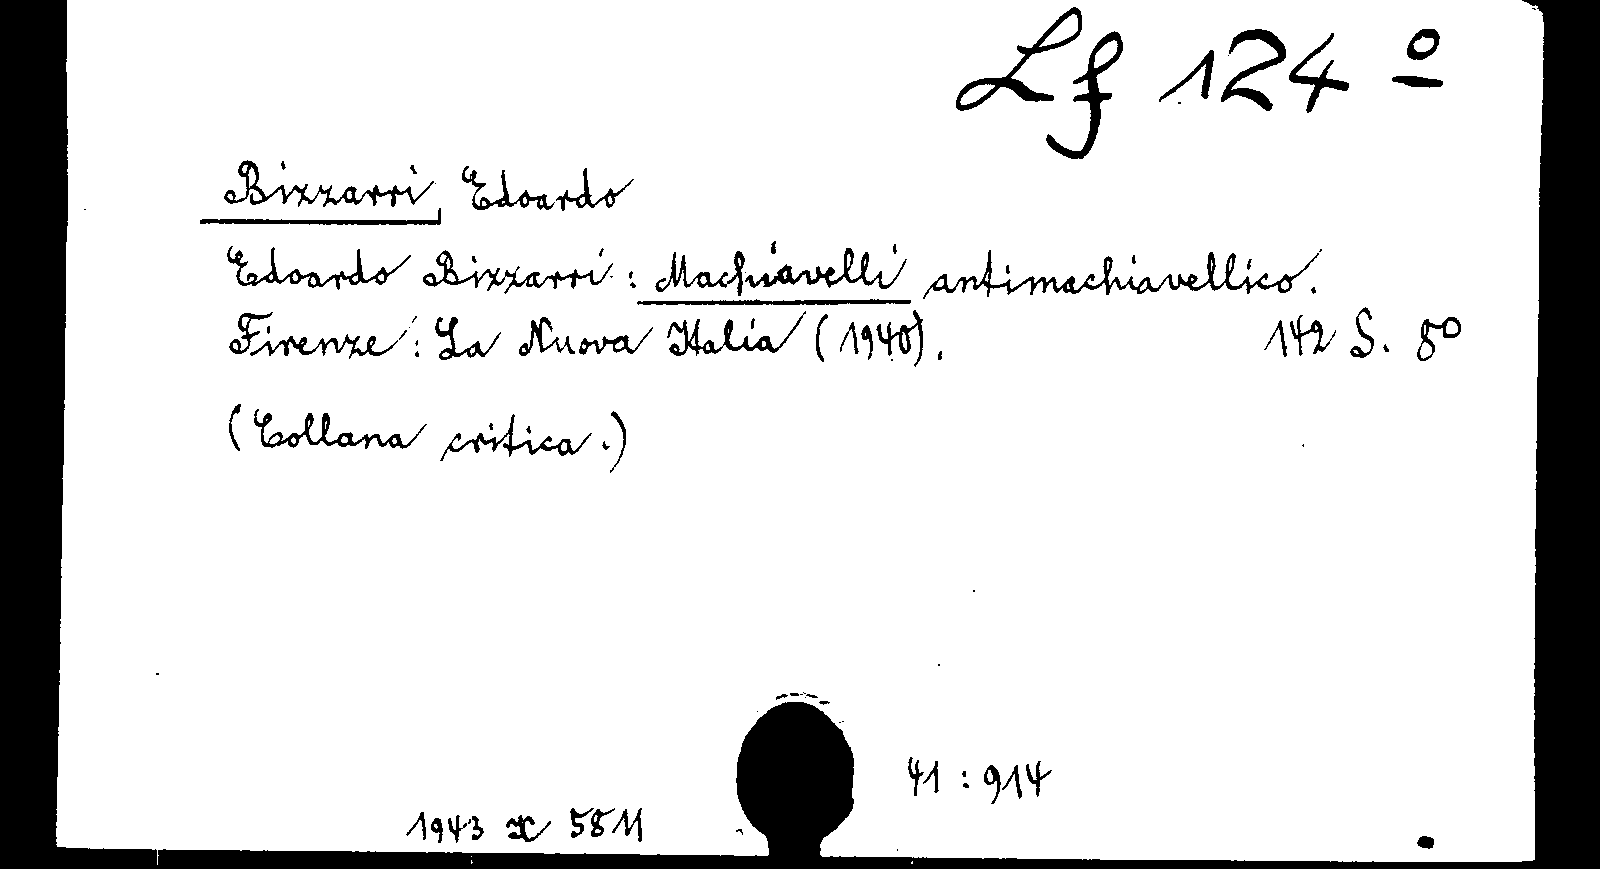 Lf 124 º
Bizzarri, Edoardo
Edoardo Bizzarri: Machiavelli antimachiavellico.
Firenze: La Nuova Italia (1940). 142 S. 8º
(Collana critica.)
41 : 914
1943 X 5811